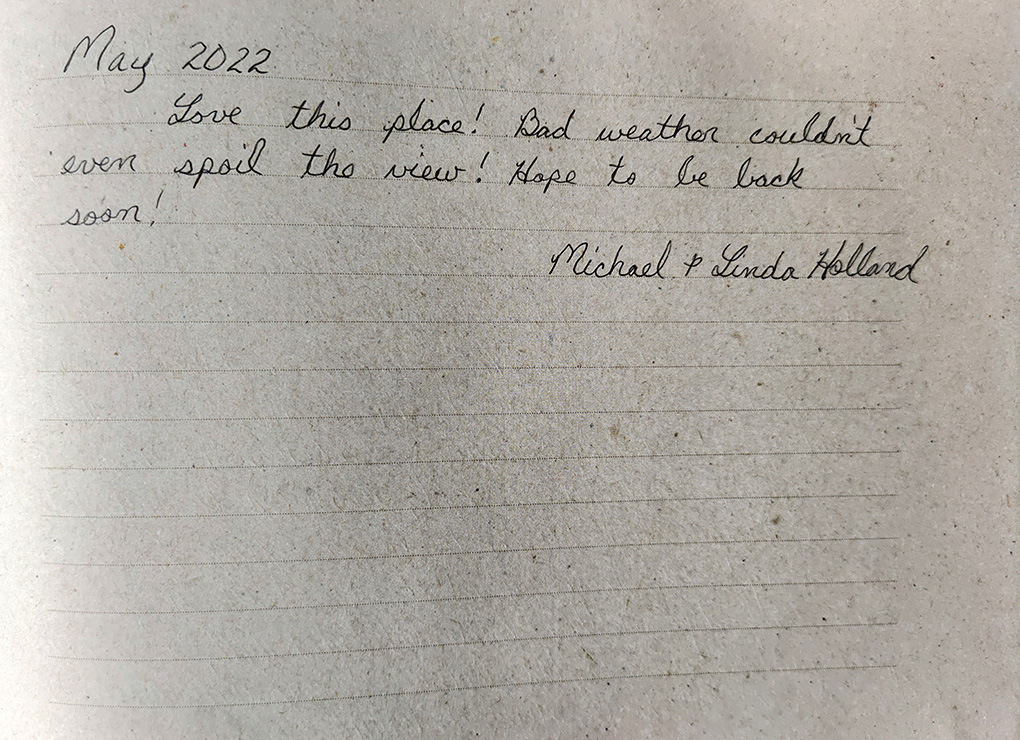 May 2022
Love this place! Bad weather couldn't
even spoil the view! Hope to be back
soon!
Michael & Linda Holland